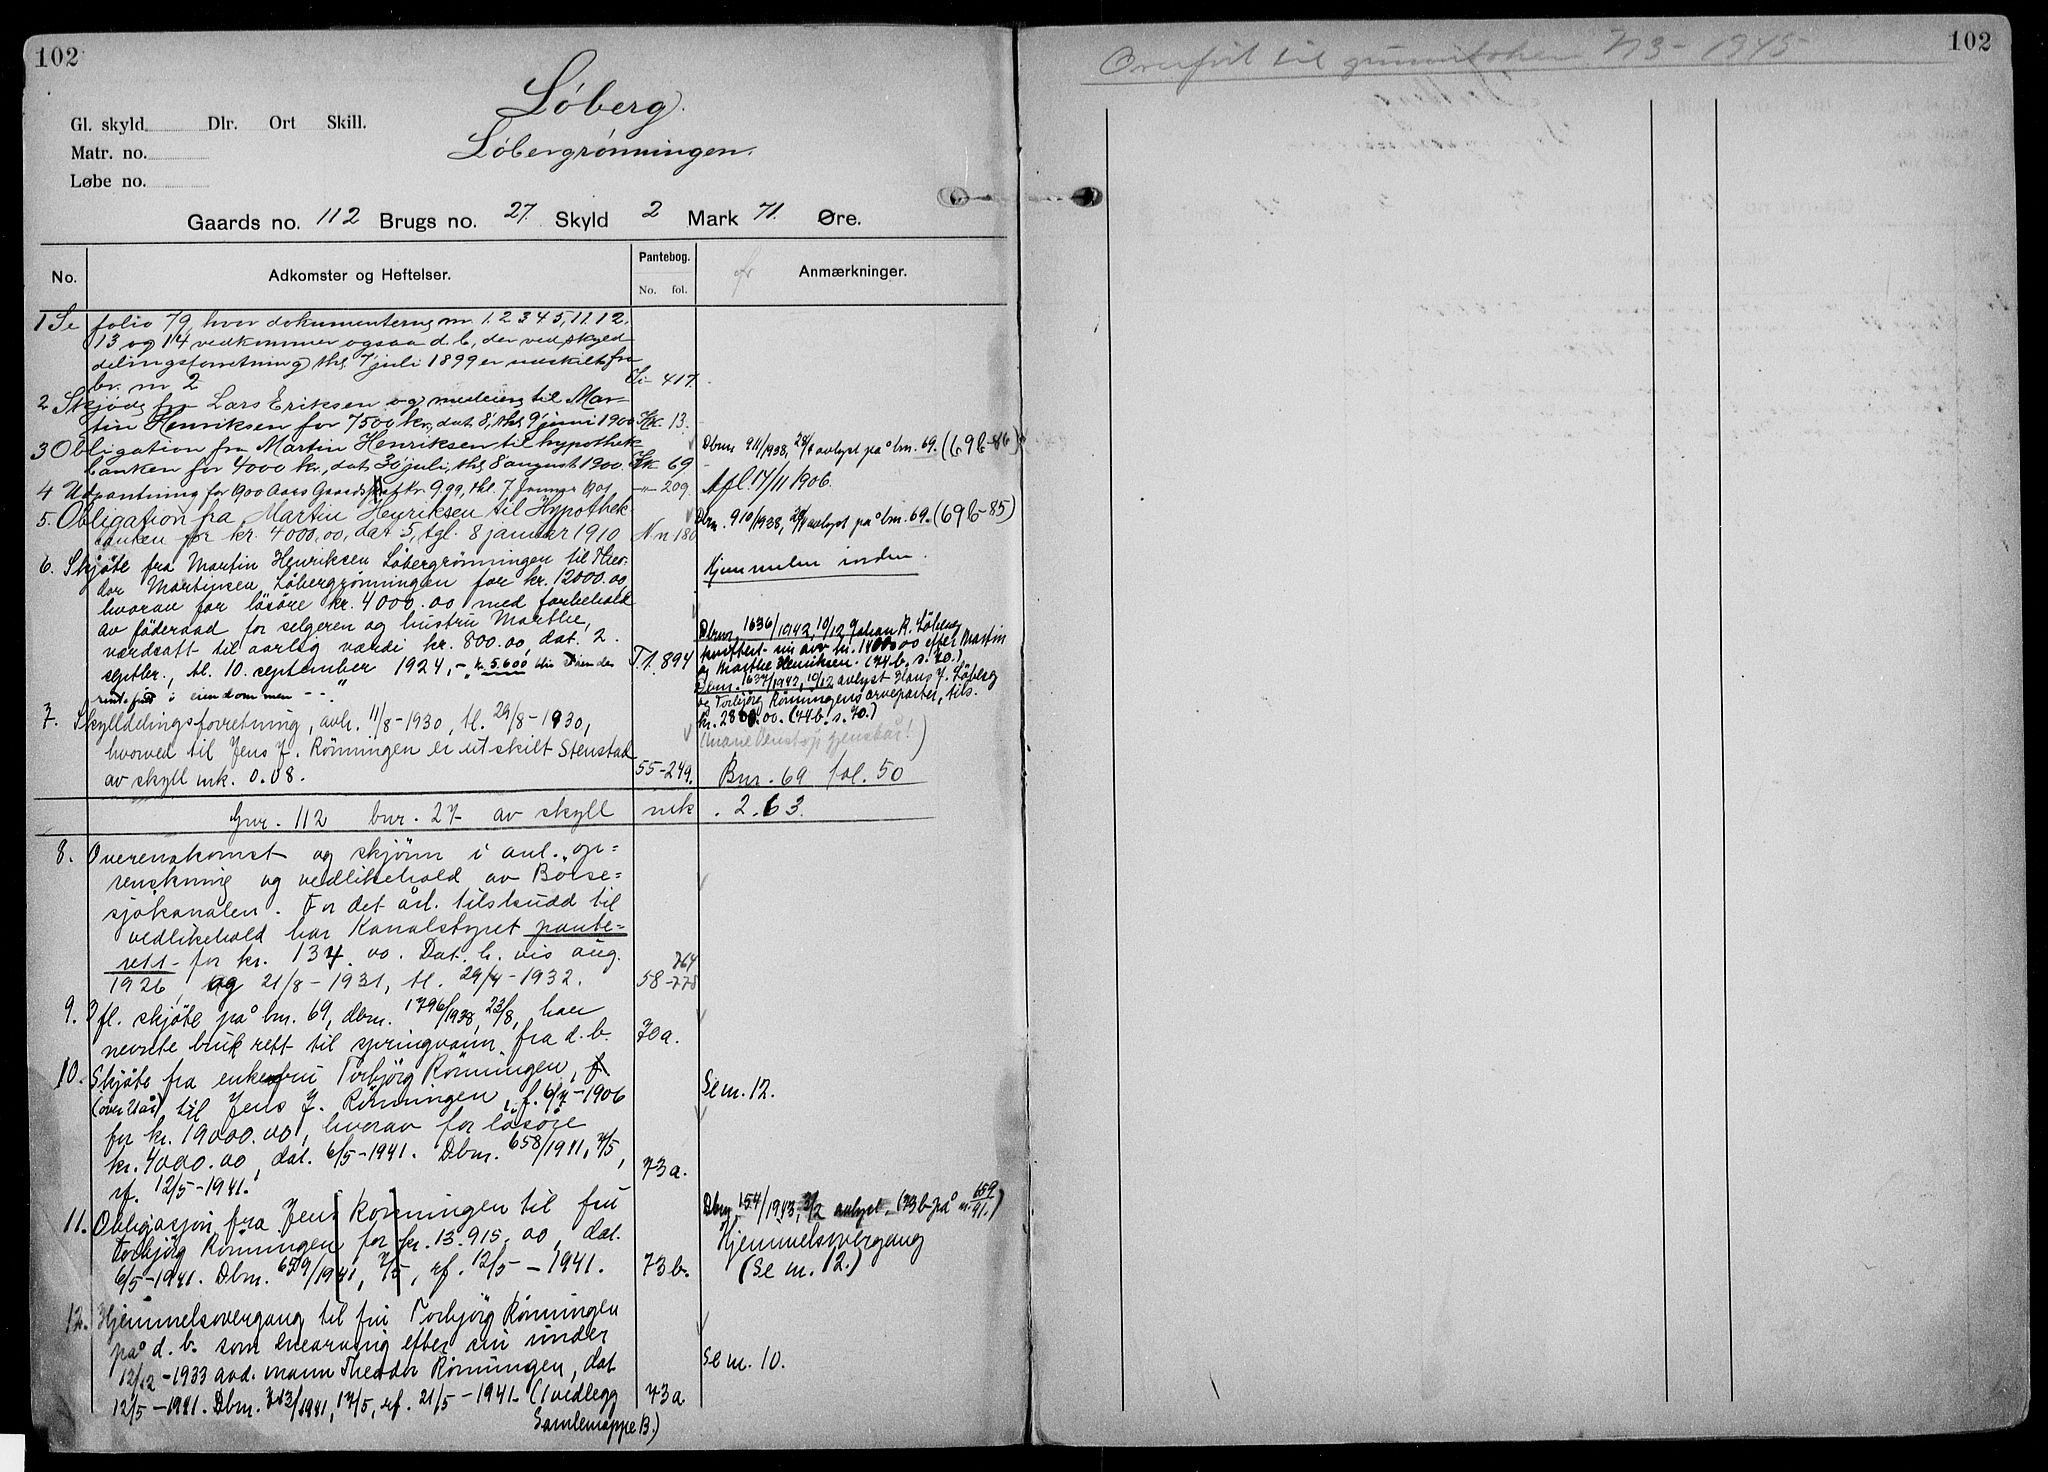 102
Løberg.
Løbergrønningen.
Gl. skyld Dlr. Ort Skill.
Matr. no.
Løbe no.
Gaards no. 112 Brugs no. 27. Skyld 2 Mark 71. Øre.
No. Adkomster og Heftelser. Pantebog. No. fol. Anmærkninger.
1 Se folio 79, hvor dokumenterne nr. 1. 2 3 4 5, 11. 12.
13 og 14 vedkommer ogsaa d. b., der ved skyld
delingsforretning thl. 7 juli 1899 er udskilt fra
br. nr 2 417.
2 Skjøde fra Lars Eriksen og medeiere til Mar-
tin Henriksen for 7500 kr., dat. 8, thl. 9 juni 1900 Kk. 13.
3 Obligation fra Martin Henriksen til hypothek-
banken for 4000 kr., dat. 30 juli, thl. 8 august 1900. Kk 69 Dbnr. 911/1938, avlyst på bnr. 69. (69b-86)
4 Udpantning for 1900 Aars Gaardskat Kr. 9.99, thl. 7 Januar 1901 -"- 209. Afl. 17/11 1906.
5. Obligation fra Martin Henriksen til Hypothek
banken for kr. 4000,00, dat 5, tgl. 8 januar 1910 Nn 180 Dbnr. 910/1938, avlyst på bnr. 69. (69b-85)
6. Skjöte fra Martin Henriksen Löbergrønningen til Theo- Hjemmelen inden.
dor Martinsen Löbergrønningen for kr. 12000.00,
hvorav for lösöre kr. 4000.00 med forbehold
av föderaad for selgeren og hustru Marthe,
værdsatt til aarlig værdi kr. 800.00, dat. 2.
septbr., tl. 10. september 1924, - kr. 5.600 T 1. 894
rentefrit i eiendommen - - "
Dbnr. 1636/1942, 10/12 Johan R. Löberg
kr. 14000.00 efter Martin
og Marthe Henriksen. (44b, s. 70.)
Dbnr. 1637/1942, 10/12 avlyst Hans J. Löberg
og Torbjörg Rønningens arveparter, tils.
kr. 2800.00. (44b. s. 70.)
7. Skylldelingsforretning, avh. 11/8-1930, tl. 29/8-1930,
hvorved til Jens J. Rönningen er utskilt Stenstad
av skyll mk. 0.08. 55-249. Bnr. 69 fol. 50
Gnr. 112 bnr. 27 av skyll mk. 2.63.
8. Overenskomst og skjönn i anl. op-
renskning og vedlikehold av Börse-
sjökanalen. For det årl. tilskudd til
vedlikehold har Kanalstyret pante-
rett for kr. 134.00. Dat. h. vis aug. 764
1926, og 21/8-1931, tl. 29/4-1932. 58-778
9. Ifl. skjöte på bnr. 69, dbnr. 1796/1938, 23/8, har
nevnte bruk rett til springvann fra d. b. 70a.
10. Skjöte fra enkefru Torbjörg Rönningen,
(over 21 år) til Jens J. Rönningen, f. 6/7-1906 Se nr. 12.
for kr. 19000.00, hvorav for lösöre
kr. 4000.00, dat. 6/5-1941. Dbnr. 658/1941, 7/5,
rf. 12/5-1941. 73a.
11. Obligasjon fra Jens Rönningen til fru Dbnr. 154/1943, 2/2 avlyst. (73b på nr. 659/41.)
Torbjörg Rönningen for kr. 13.915,00, dat. Hjemmelsovergang
6/5-1941. Dbnr. 659/1941, 7/5, rf. 12/5-1941. 73b. (Se nr. 12.)
12. Hjemmelsovergang til fru Torbjörg Rönningen
på d. b. som enearving efter sin under
12/12-1933 avd. mann Theodor Rönningen, dat Se nr. 10.
12/5-1941. Dbnr. 713/1941, 17/5, rf. 21/5-1941. (1 vedlegg 73a
Samlemappe B.)
102
Overfört til grunnboken 1945